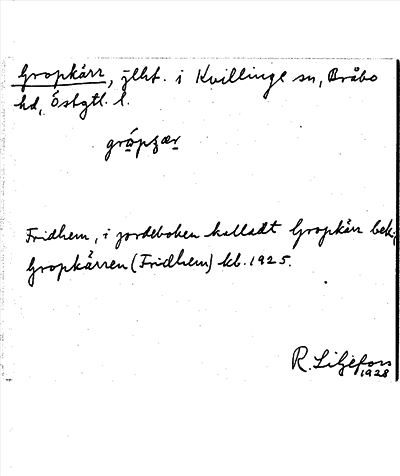 Gropkärr, jlht. i Kvillinge sn, Bråbo
hd, Östgtl. l.
Fridhem, i jordeboken kalladt Gropkärr bek.;
Gropkärren (Fridhem) kb. 1925.
R. Liljefors
1928